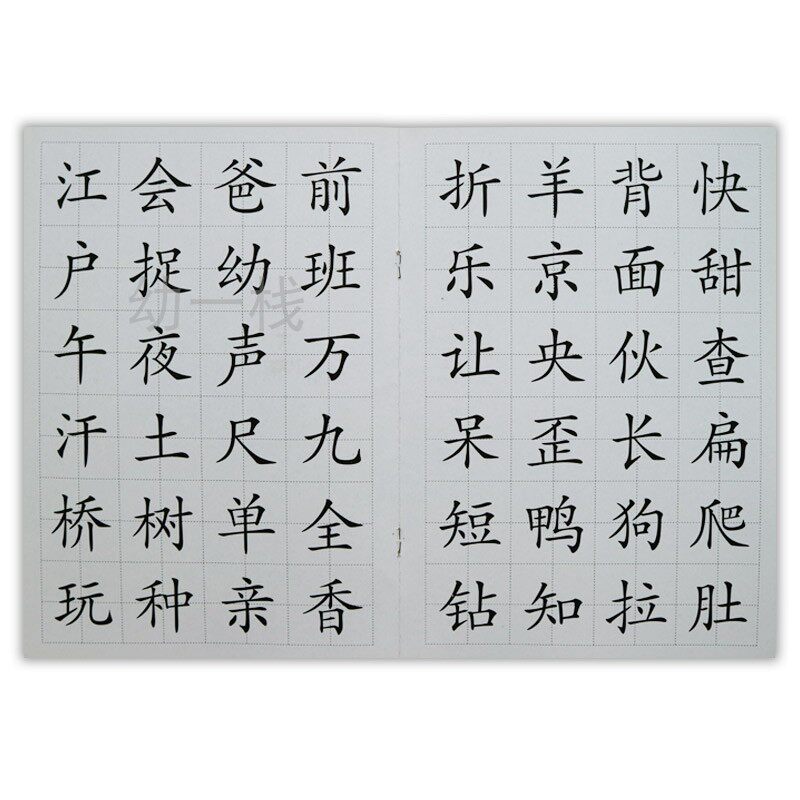 江会爸前
户捉幼班
午夜声万
汗土尺九
桥树单全
玩种亲香
折羊背快
乐京面甜
让央伙查
呆歪长扁
短鸭狗爬
钻知拉肚
幼一栈